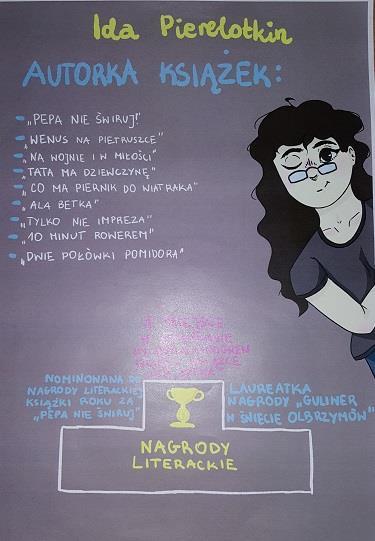 Ida Pierelotkin
AUTORKA KSIĄŻEK:
„PEPA NIE ŚWIRUJ"
„WENUS NA PIETRUSZCE"
„NA WOJNIE I W MIŁOŚCI"
„TATA MA DZIEWCZYNĘ"
„CO MA PIERNIK DO WIATRAKA"
„ALA BETKA"
„TYLKO NIE IMPREZA"
„10 MINUT ROWEREM"
„DWIE POŁÓWKI POMIDORA"
NOMINOWANA DO
NAGRODY LITERACKIEJ
KSIĄŻKI ROKU ZA
„PEPA NIE ŚWIRUJ"
LAUREATKA
NAGRODY „GULIWER
W ŚWIECIE OLBRZYMÓW"
NAGRODY
LITERACKIE